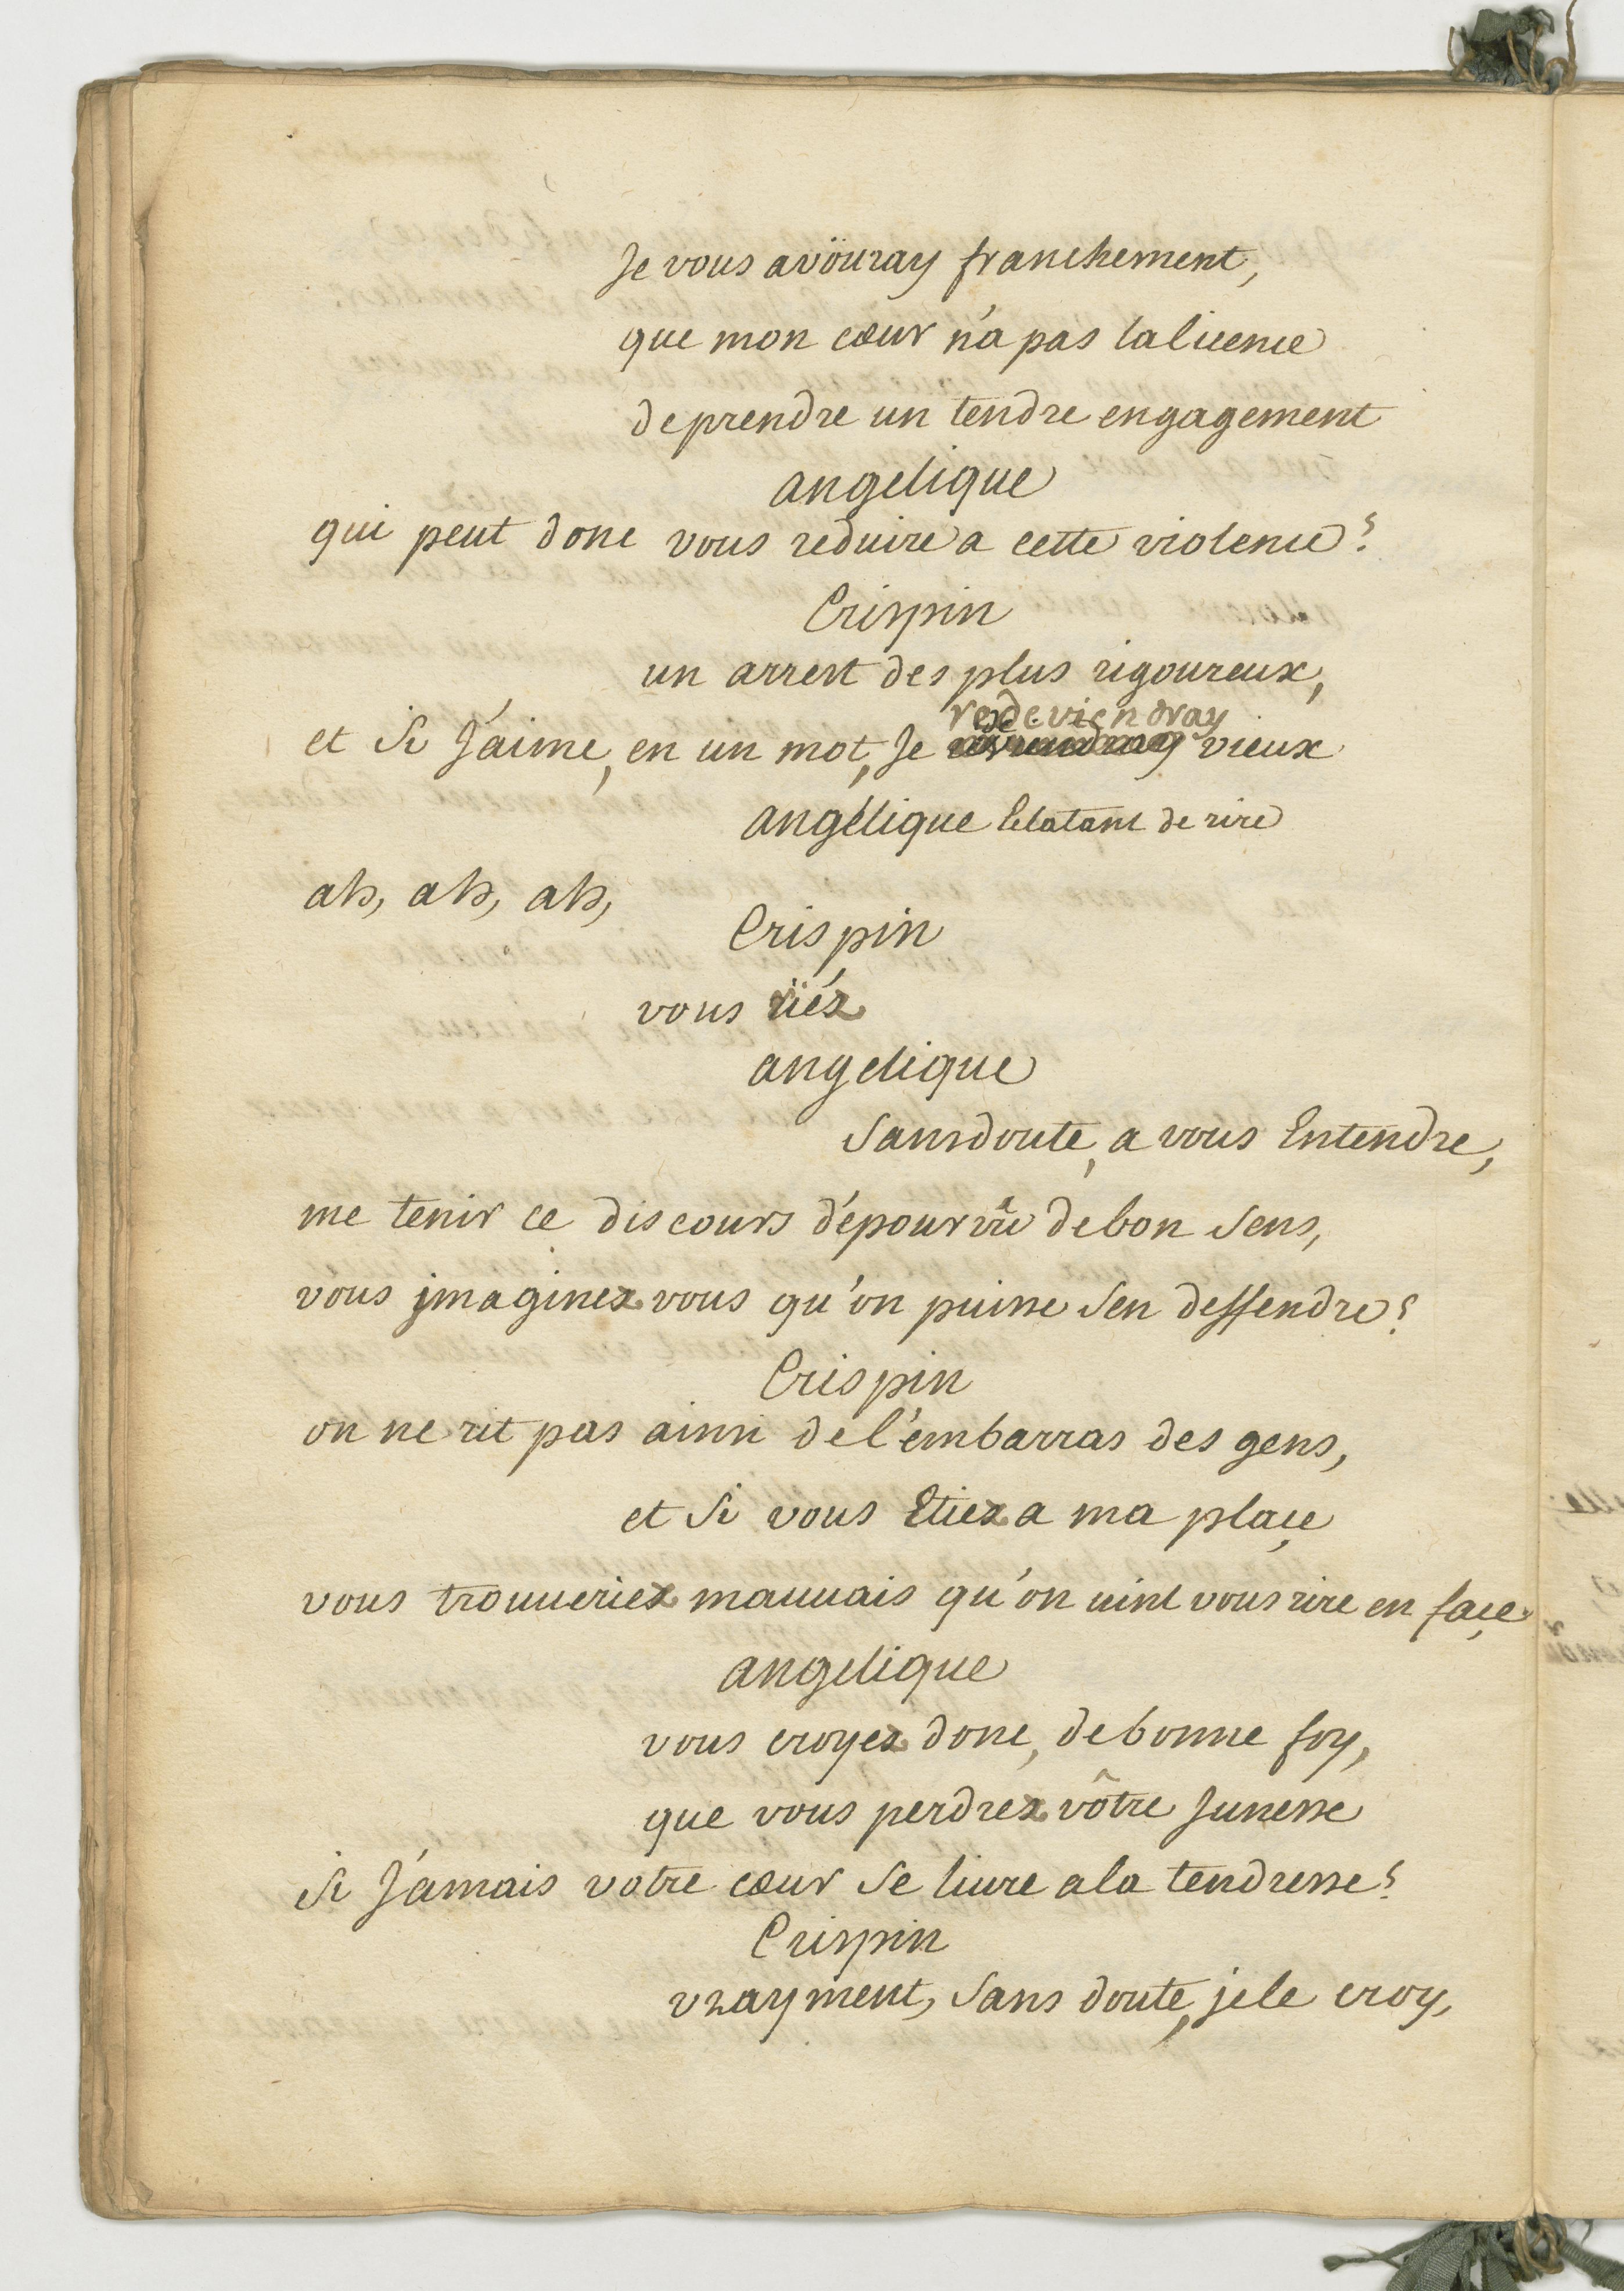 Je vous avoüray franchement,
que mon cœur n'a pas la licence
de prendre un tendre engagement
angelique
qui peut donc vous reduire a cette violence?
Crispin
un arrest des plus rigoureux,
redeviendray
et Si J'aime, en un mot, Je vieux
angélique Eclatant de rire
ah, ah, ah,
Crispin
vous riéz
angelique
Sans doute, a vous Entendre,
me tenir ce discours dépourvû de bon Sens,
vous jmaginez vous qu'on puisse S'en deffendre?
Crispin
on ne rit pas ainsi de l'émbarras des gens,
et Si vous Etiez a ma plaçe
vous trouueriez mauuais qu'on uint vous rire en façe
angelique
vous croyez donc, de bonne foy,
que vous perdrez vôtre Junesse
Si J'amais votre cœur Se liure a la tendresse?
Crispin
vrayment, Sans doute, je le croy,